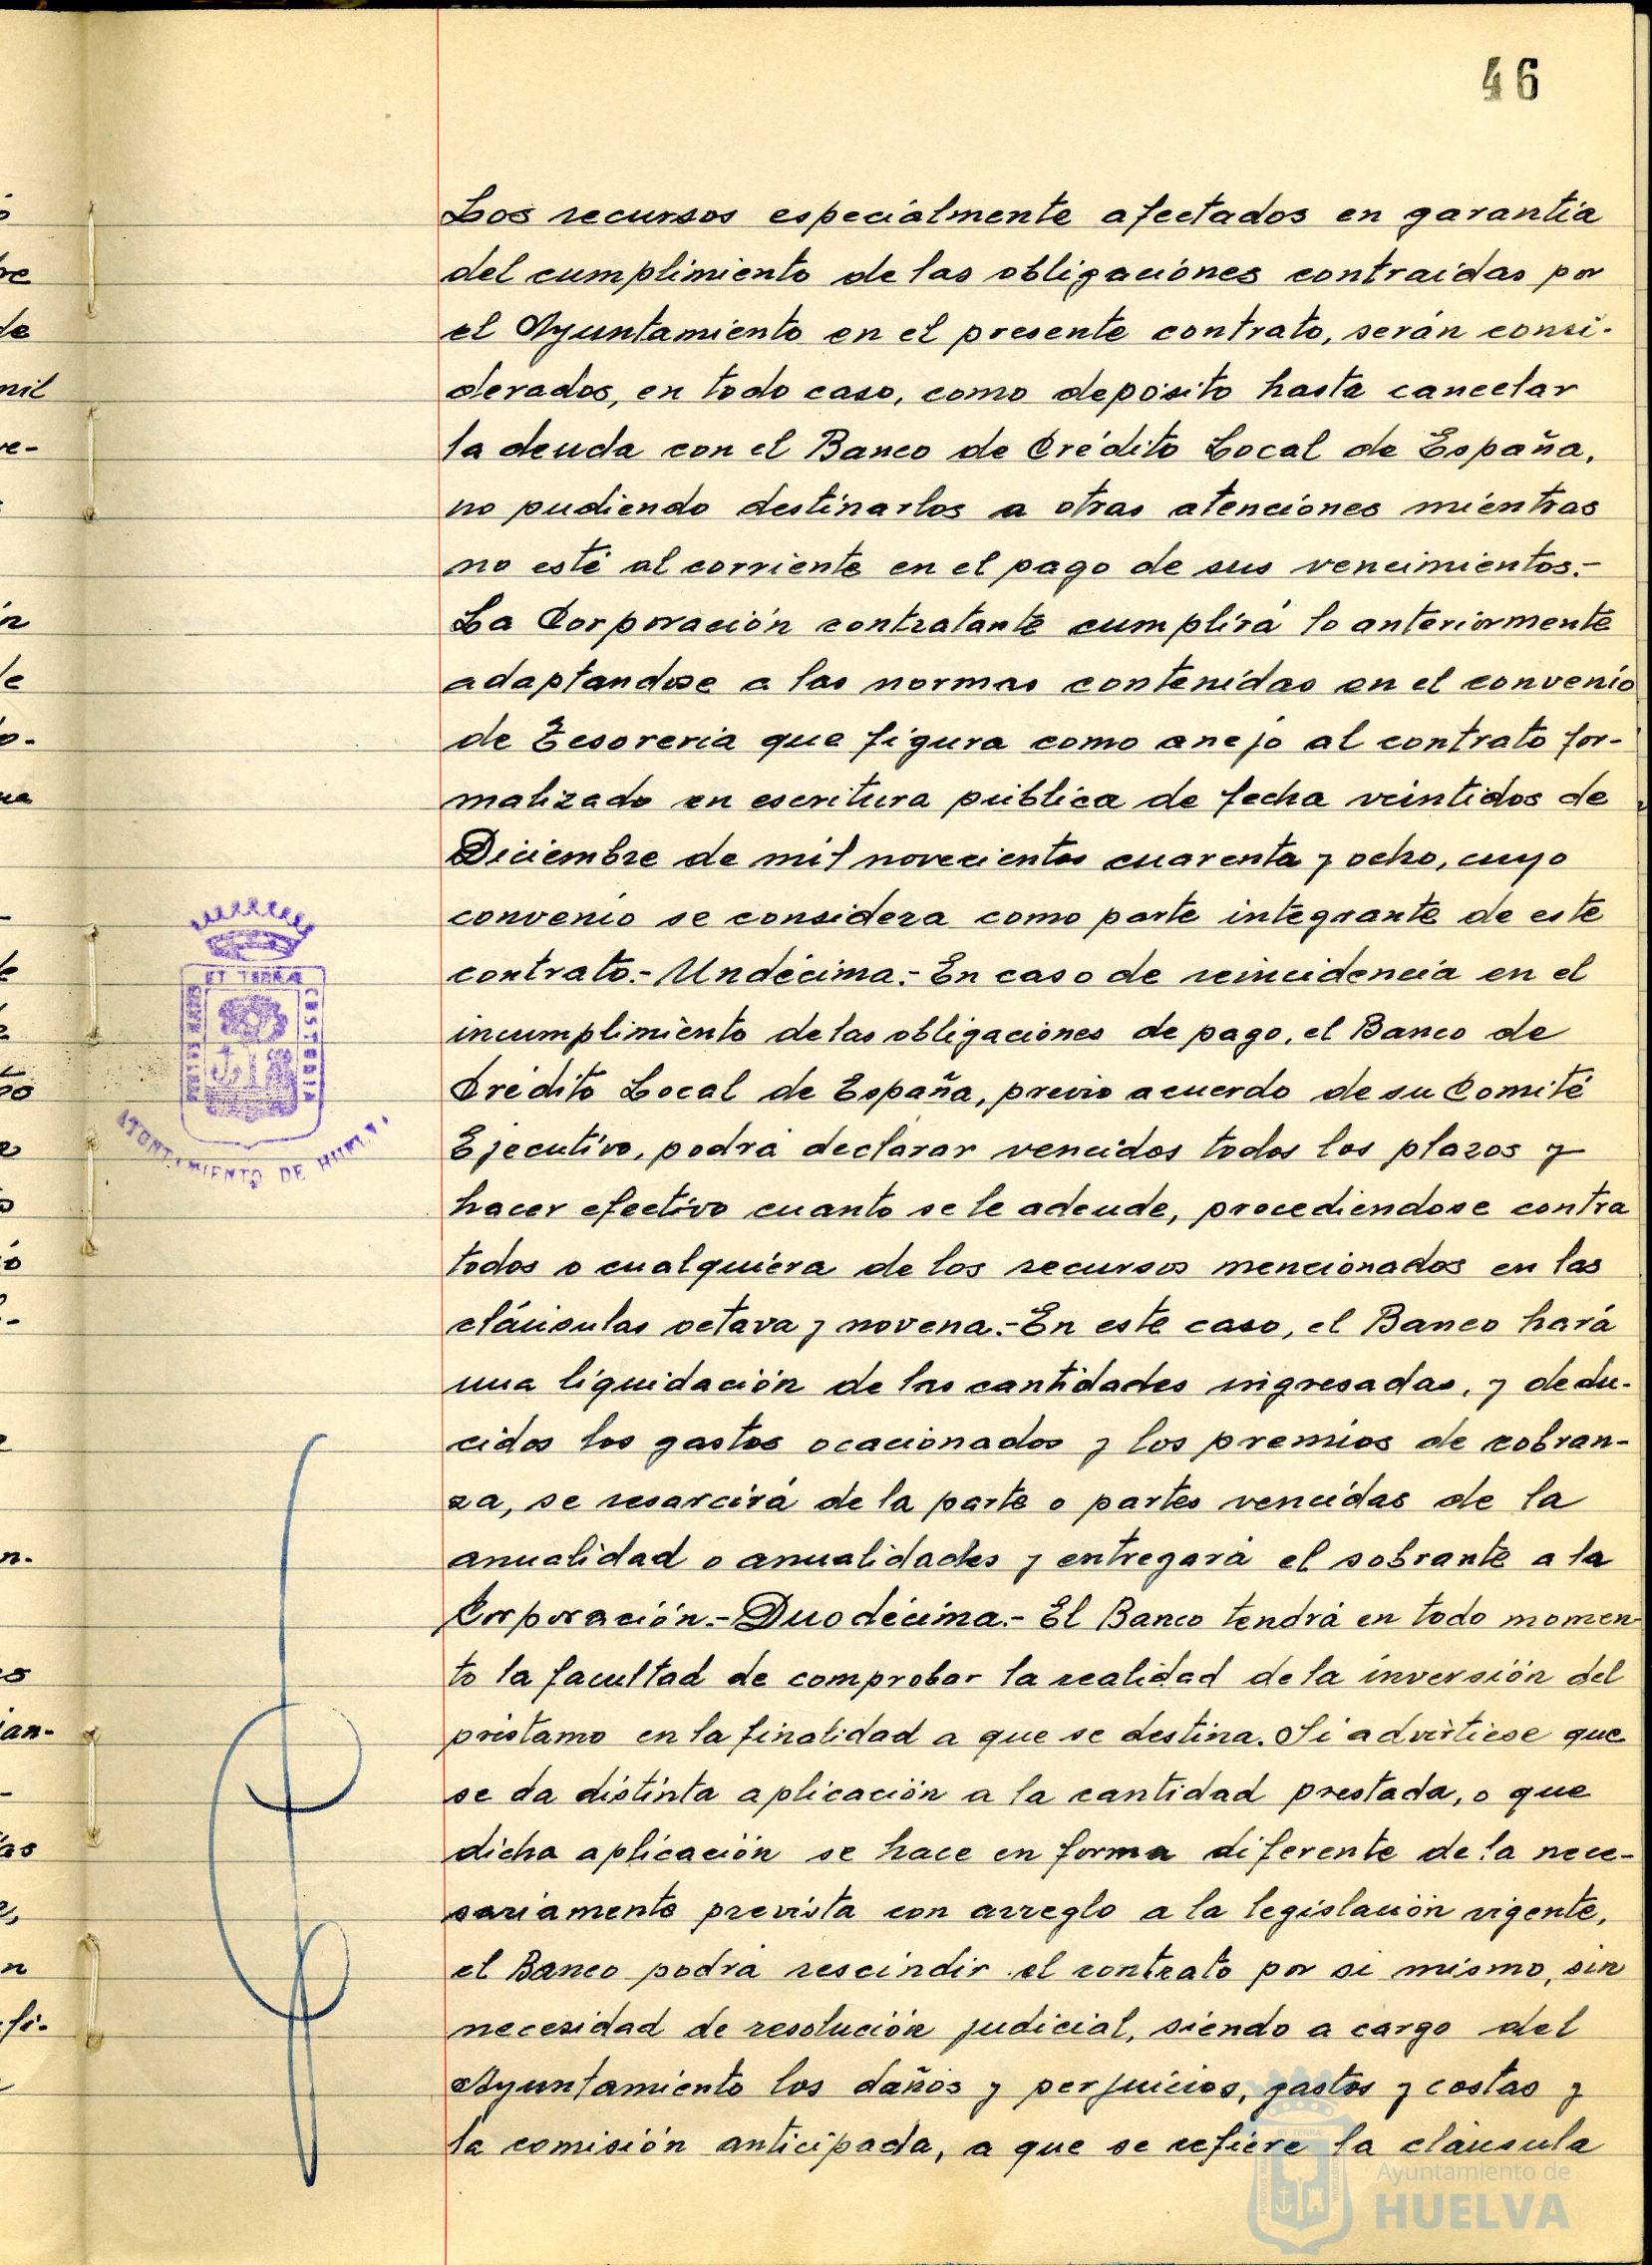 46
Los recursos especialmente afectados en garantía
del cumplimiento de las obligaciones contraidas por
el Ayuntamiento en el presente contrato, serán consi-
derados, en todo caso, como depósito hasta cancelar
la deuda con el Banco de Crédito Local de España,
no pudiendo destinarlos a otras atenciones mientras
no esté al corriente en el pago de sus vencimientos.-
La Corporación contratante cumplirá lo anteriormente
adaptandose a las normas contenidas en el convenio
de Tesorería que figura como anejo al contrato for-
malizado en escritura pública de fecha veintidos de
Diciembre de mil novecientos cuarenta y ocho, cuyo
convenio se considera como parte integrante de este
contrato.- Undécima.- En caso de reincidencia en el
incumplimiento de las obligaciones de pago, el Banco de
Crédito Local de España, previo acuerdo de su Comité
Ejecutivo, podrá declarar vencidos todos los plazos y
hacer efectivo cuanto se le adeude, procediendose contra
todos o cualquiera de los recursos mencionados en las
cláusulas octava y novena.- En este caso, el Banco hará
una liquidación de las cantidades ingresadas, y dedu-
cidos los gastos ocacionados y los premios de cobran-
za, se resarcirá de la parte o partes vencidas de la
anualidad o anualidades y entregará el sobrante a la
Corporación.- Duodécima.- El Banco tendrá en todo momen-
to la facultad de comprobar la realidad de la inversión del
préstamo en la finalidad a que se destina. Si advirtiese que
se da distinta aplicación a la cantidad prestada, o que
dicha aplicación se hace en forma diferente de la nece-
sariamente prevista con arreglo a la legislación vigente,
el Banco podrá rescindir el contrato por si mismo, sin
necesidad de resolución judicial, siendo a cargo del
Ayuntamiento los daños y perjuicios, gastos y costas y
la comisión anticipada, a que se refiere la cláusula
PORTUS MARIS
ET TERRÆ
CUSTODIA
AYUNTAMIENTO DE HUELVA
Ayuntamiento de
HUELVA